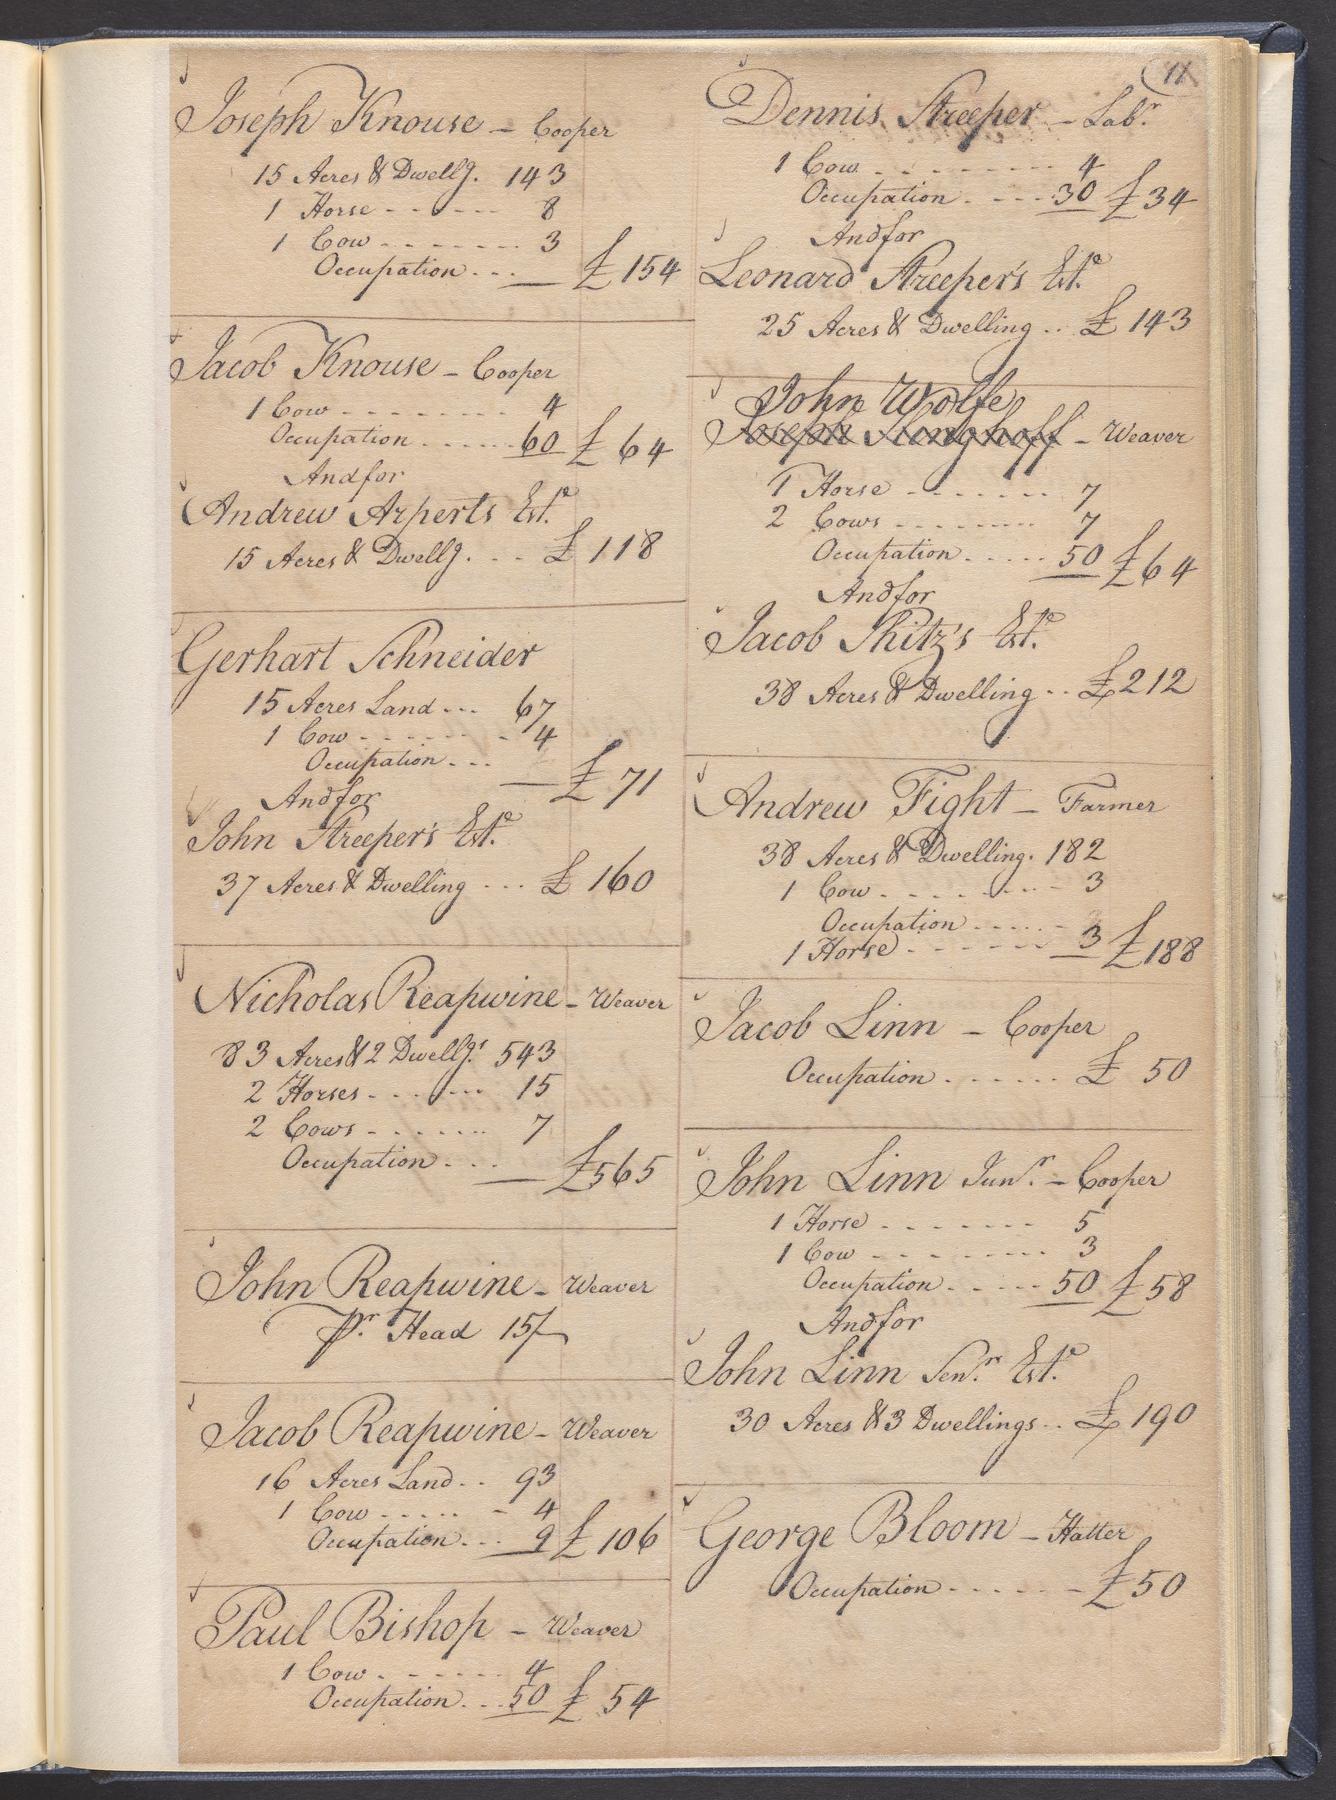 11
Joseph Knouse - Cooper
15 Acres & Dwellg. 143
1 Horse - - - - - - 8
1 Cow - - - - - - - 3
Occupation - - - £ 154
Jacob Knouse - Cooper
1 Cow - - - - - - - - 4
Occupation - - - - - 60 £ 64
And for
Andrew Arperts Este.
15 Acres & Dwellg. - - - £ 118
Gerhart Schneider
15 Acres Land - - - 67
1 Cow - - - - - - - 4
Occupation - - -
£ 71
And for
John Streeper's Este.
37 Acres & Dwelling - - - £ 160
Nicholas Reapwine - Weaver
83 Acres & 2 Dwellgs. 543
2 Horses - - - - - - 15
2 Cows - - - - - - - 7
Occupation - - - £565
John Reapwine - Weaver
Pr. Head 15/
Jacob Reapwine - Weaver
16 Acres Land - - 93
1 Cow - - - - - - 4
Occupation - - - 9 £ 106
Paul Bishop - Weaver
1 Cow - - - - - - 4
Occupation - - - 50 £ 54
Dennis Streeper - Labr.
1 Cow - - - - - - - - 4
Occupation - - - - 30 £34
And for
Leonard Streeper's Este.
25 Acres & Dwelling - - £ 143
John Wolfe
Joseph - Weaver
1 Horse - - - - - - - 7
2 Cows - - - - - - - - 7
Occupation - - - - - 50 £64
And for
Jacob Shitz's Este.
38 Acres & Dwelling - - £212
Andrew Fight - Farmer
38 Acres & Dwelling. 182
1 Cow - - - - - - - - 3
Occupation - - - - -
1 Horse - - - - - - - 3 £188
Jacob Linn - Cooper
Occupation - - - - - - £ 50
John Linn Junr. - Cooper
1 Horse - - - - - - - 5
1 Cow - - - - - - - - 3
Occupation - - - - - 50 £58
And for
John Linn Senr. Este.
30 Acres & 3 Dwellings - - £ 190
George Bloom - Hatter
Occupation - - - - - - £50